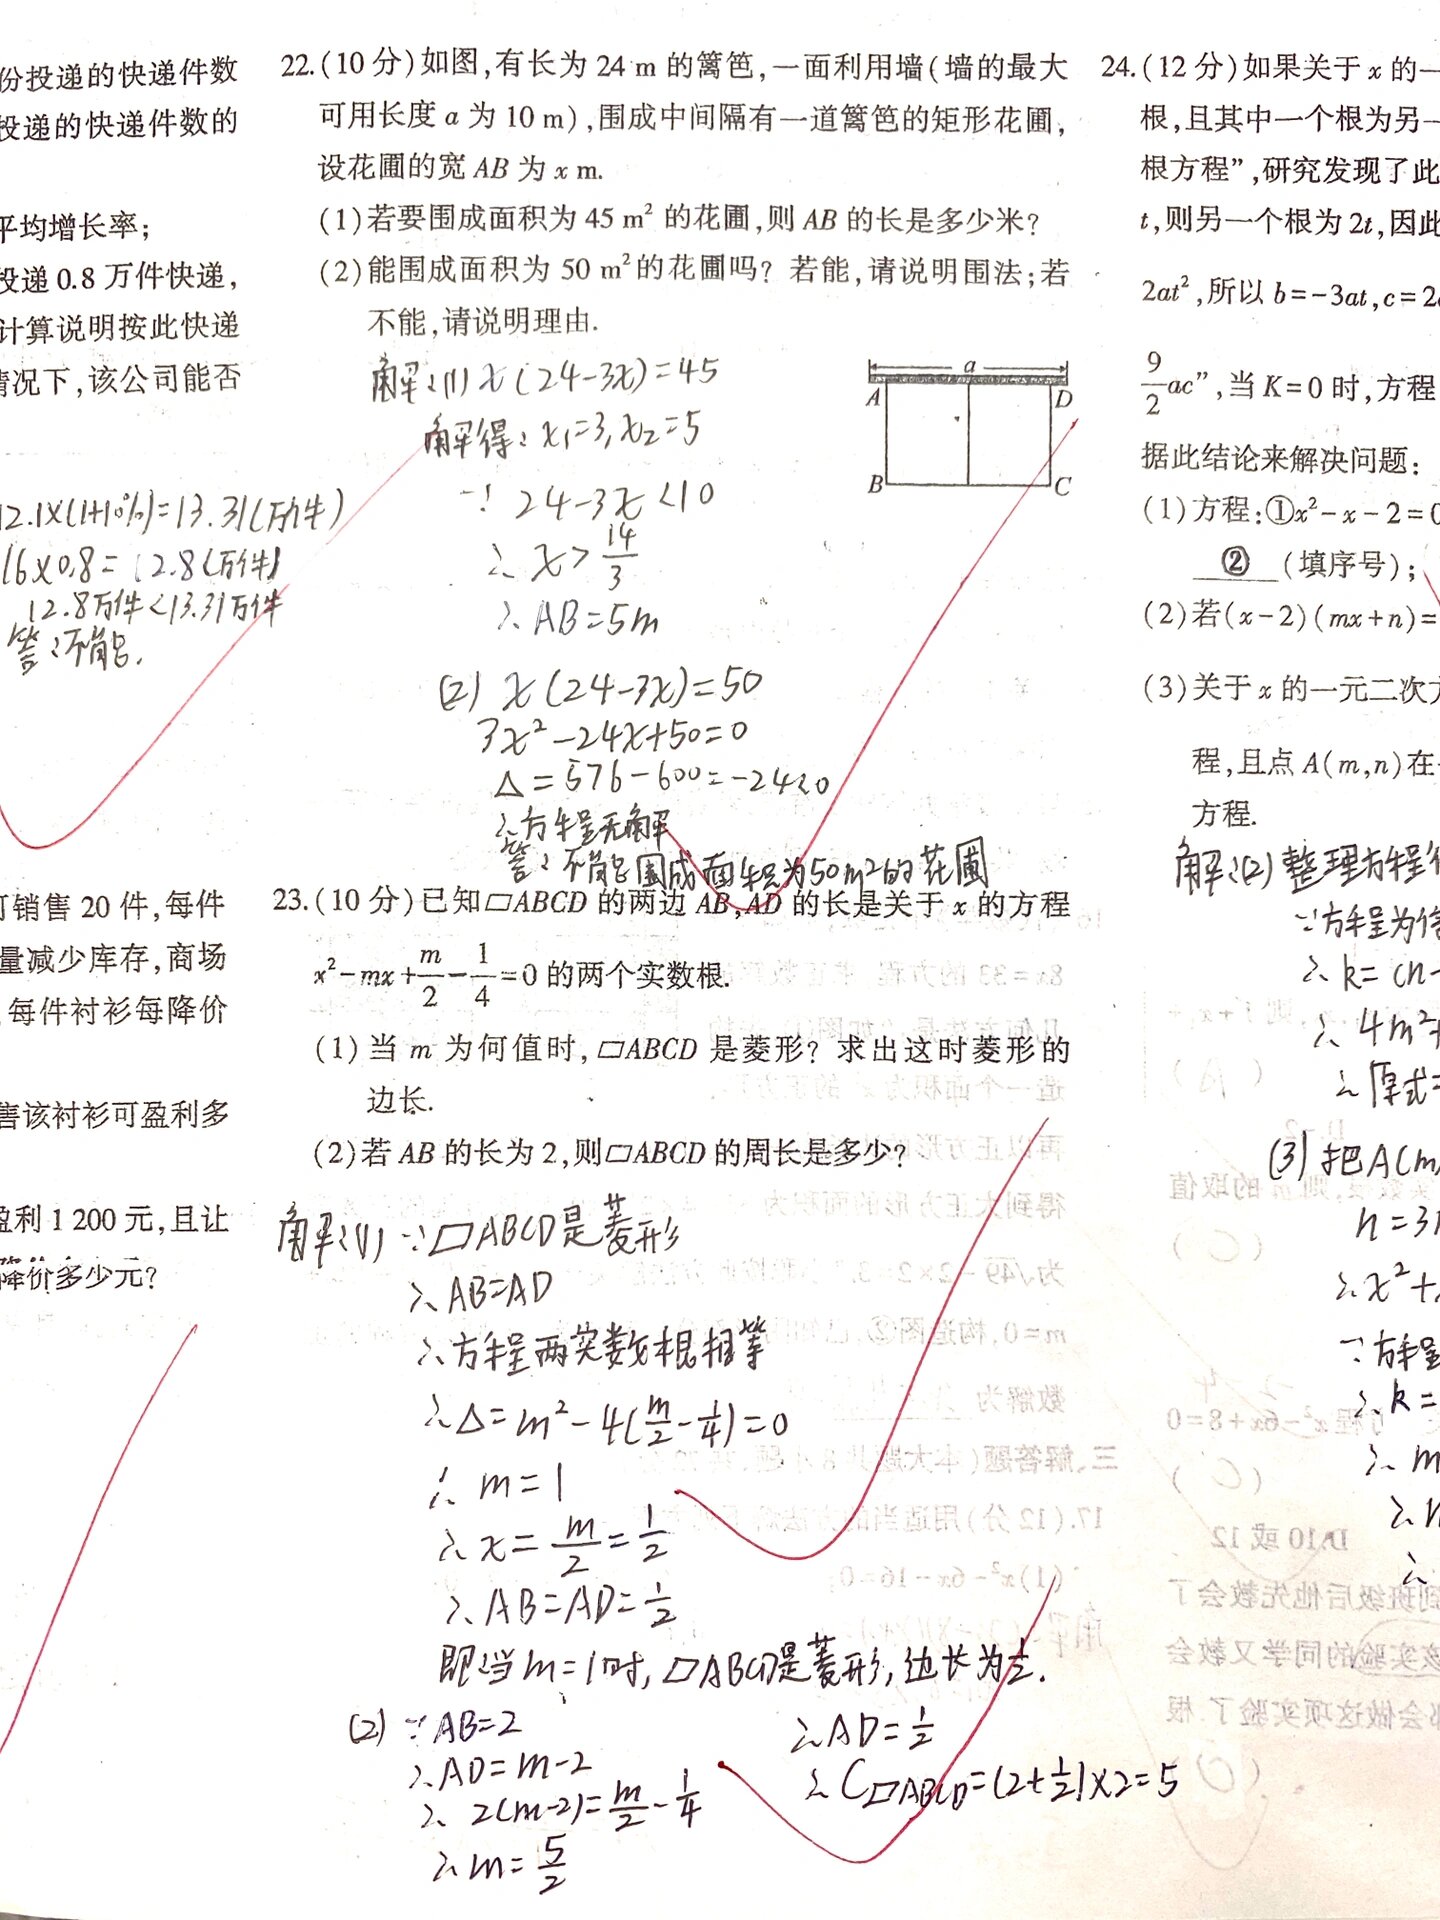 份投递的快递件数
投递的快递件数的
平均增长率;
投递 0.8 万件快递,
计算说明按此快递
情况下,该公司能否
12.1×(1+10%)=13.31(万件)
16×0.8=12.8(万件)
12.8万件<13.31万件
答:不能.
可销售 20 件,每件
量减少库存,商场
,每件衬衫每降价
售该衬衫可盈利多
盈利 1 200 元,且让
降价多少元?
22.(10 分)如图,有长为 24 m 的篱笆,一面利用墙(墙的最大
可用长度 a 为 10 m),围成中间隔有一道篱笆的矩形花圃,
设花圃的宽 AB 为 x m.
(1)若要围成面积为 45 m² 的花圃,则 AB 的长是多少米?
(2)能围成面积为 50 m²的花圃吗? 若能,请说明围法;若
不能,请说明理由.
解:(1) x(24-3x)=45
解得:x₁=3,x₂=5
∵ 24-3x<10
∴ x>14/3
∴ AB=5m
a
A D
B C
(2) x(24-3x)=50
3x²-24x+50=0
Δ=576-600=-24<0
∴方程无解
答:不能围成面积为50m²的花圃
23.(10 分)已知▱ABCD 的两边 AB,AD 的长是关于 x 的方程
x²-mx+m/2-1/4=0 的两个实数根.
(1)当 m 为何值时,▱ABCD 是菱形? 求出这时菱形的
边长.
(2)若 AB 的长为 2,则▱ABCD 的周长是多少?
解:(1) ∵▱ABCD是菱形
∴AB=AD
∴方程两实数根相等
∴Δ=m²-4(m/2-1/4)=0
∴ m=1
∴ x=m/2=1/2
∴ AB=AD=1/2
即:当m=1时,▱ABCD是菱形,边长为1/2.
(2) ∵AB=2
∴AD=m-2
∴ 2(m-2)=m/2-1/4
∴ m=5/2
∴AD=1/2
∴ C▱ABCD=(2+1/2)×2=5
24.(12 分)如果关于 x 的一
根,且其中一个根为另一
根方程”,研究发现了此
t,则另一个根为 2t,因此
2at²,所以 b=-3at,c=2
9/2ac”,当 K=0 时,方程
据此结论来解决问题:
(1)方程:①x²-x-2=0
② (填序号);
(2)若(x-2)(mx+n)=
(3)关于 x 的一元二次方
程,且点 A(m,n)在
方程.
解:(2)整理方程得
∵方程为倍
∴ k=(n-
∴ 4m²+
∴ 原式=
(3) 把A(m,
n=3
∴x²+
∵方程
∴k=
∴ m
∴